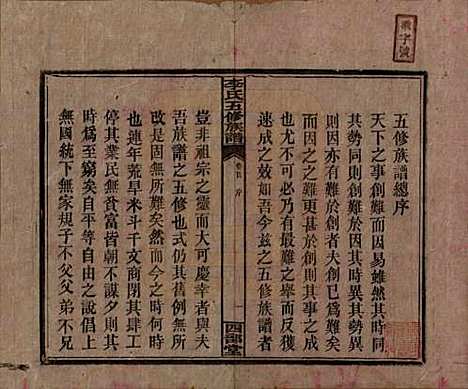 五修族譜總序
天下之事創難而因易雖然其時同
其勢同則因易於創其時異其勢異
則因亦有難於創者夫創已爲難矣
而因之之難更甚於創則其事之成
不尤可樂乃有最難之舉而反易於
速成之效如吾今兹之五修族譜者
李氏五修族譜
卷首 序
一
四部堂
豈非祖宗之靈而大可慶幸者與夫
吾族譜之五修也式仍其舊無所爲
改是固無所難矣然而一時何時
也連年荒旱米斗千文商閉其肆工
停其業民無貧富者朝不謀夕則其
勢至窮矣自平等自由之說倡上
無國統下無家規子不父父弟不兄